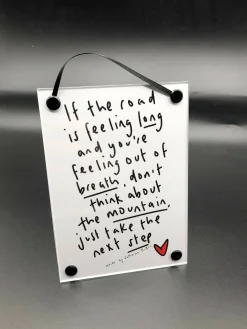 If the road
is feeling long
and you're
feeling out of
breath, don't
think about
the mountain,
just take the
next step